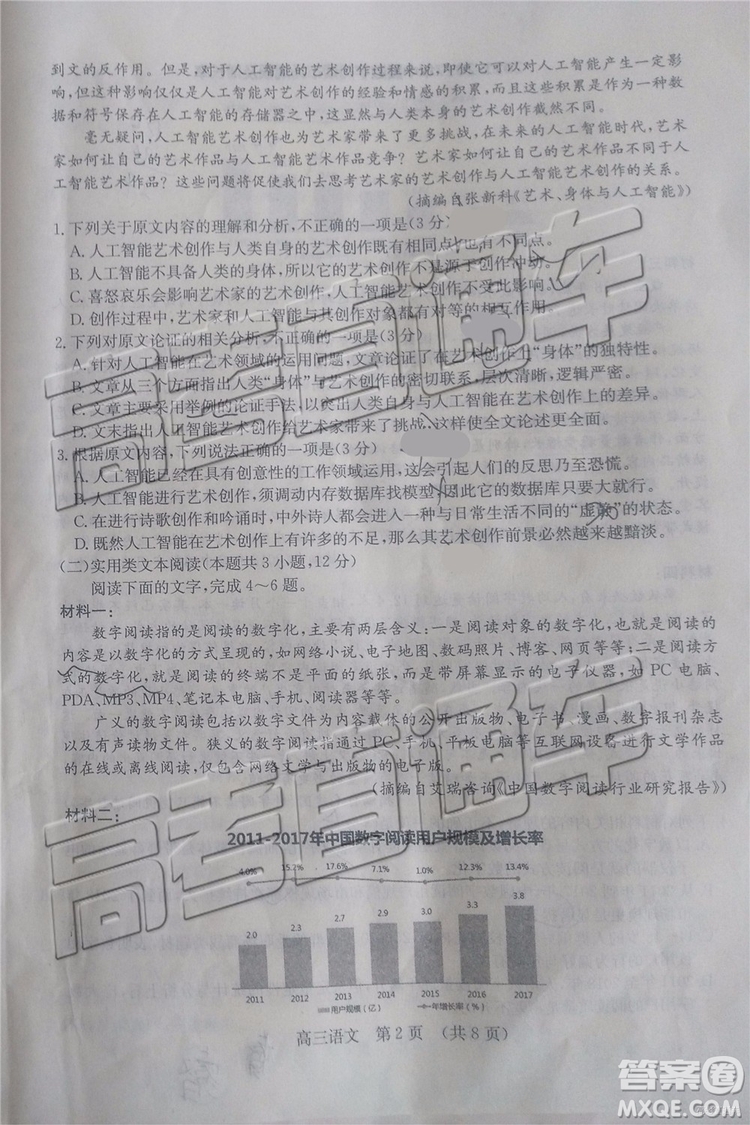 到文的反作用。但是,对于人工智能的艺术创作过程来说,即使它可以对人工智能产生一定影
响,但这种影响仅仅是人工智能对艺术创作的经验和情感的积累,而且这种积累作为一种数
据和符号保存在人工智能的存储器之中,这显然与人类本身的艺术创作截然不同。
毫无疑问,人工智能艺术创作也为艺术家带来了更多挑战,在未来的人工智能时代,艺术
家如何让自己的艺术作品与人工智能艺术作品竞争?艺术家如何让自己的艺术作品不同于人
工智能艺术作品?这些问题将促使我们去思考艺术家的艺术创作与人工智能艺术创作的关系。
(摘编自张新科《艺术、身体与人工智能》)
1.下列关于原文内容的理解和分析,不正确的一项是(3分)
A.人工智能艺术创作与人类自身的艺术创作既有相同点也有不同点。
B.人工智能不具备人类的身体,所以它的艺术创作不是源于创作冲动。
C.喜怒哀乐会影响艺术家的艺术创作,人工智能的创作不受此影响。
D.创作过程中,艺术家和人工智能与其创作对象都有对等的相互作用。
2.下列对原文论证的相关分析,不正确的一项是(3分)
A.针对人工智能在艺术领域的运用问题,文章论证了在艺术创作上“身体”的独特性。
B.文章从三个方面指出人类“身体”与艺术创作的密切联系,层次清晰,逻辑严密。
C.文章主要采用举例的论证手法,以突出人类与人工智能在艺术创作上的差异。
D.文末指出人工智能艺术创作给艺术家带来了挑战,这样使全文论述更全面。
3.根据原文内容,下列说法正确的一项是(3分)
A.人工智能已经在具有创意性的工作领域运用,这会引起人们的反思乃至恐慌。
B.人工智能进行艺术创作,须调动内存数据库找模型,因此它的数据库只要大就行。
C.在进行诗歌创作和吟诵时,中外诗人都会进入一种与日常生活不同的“虚幻”的状态。
D.既然人工智能艺术创作存在许多的不足,那么人工智能艺术创作前景必然越来越黯淡。
(二)实用类文本阅读(本题共3小题,12分)
阅读下面的文字,完成4～6题。
材料一:
数字阅读指的是阅读的数字化,主要有两层含义:一是阅读对象的数字化,也就是阅读的
内容是以数字化的方式呈现的,如网络小说、电子地图、数码照片、博客、网页等等;二是阅读方
式的数字化,就是阅读的终端不是平面的纸张,而是带屏幕显示的电子仪器,如PC电脑、
PDA、MP3、MP4、笔记本电脑、手机、阅读器等等。
广义的数字阅读包括以数字文件为内容载体的公开出版物、电子书、漫画、数字报刊杂志
以及有声读物文件。狭义的数字阅读指通过PC、手机、平板电脑等互联网设备进行文学作品
的在线或离线阅读,仅包含网络文学与出版物的电子版。
(摘编自艾瑞咨询《中国数字阅读行业研究报告》)
材料二:
2011-2017年中国数字阅读用户规模及增长率
4.0% 15.2% 17.6% 7.1% 1.0% 12.3% 13.4%
2.0 2.3 2.7 2.9 3.0 3.3 3.8
2011 2012 2013 2014 2015 2016 2017
用户规模(亿) 年增长率(%)
高三语文 第2页 (共8页)
高考直通车
高考直通车
答案圈
MXQE.COM